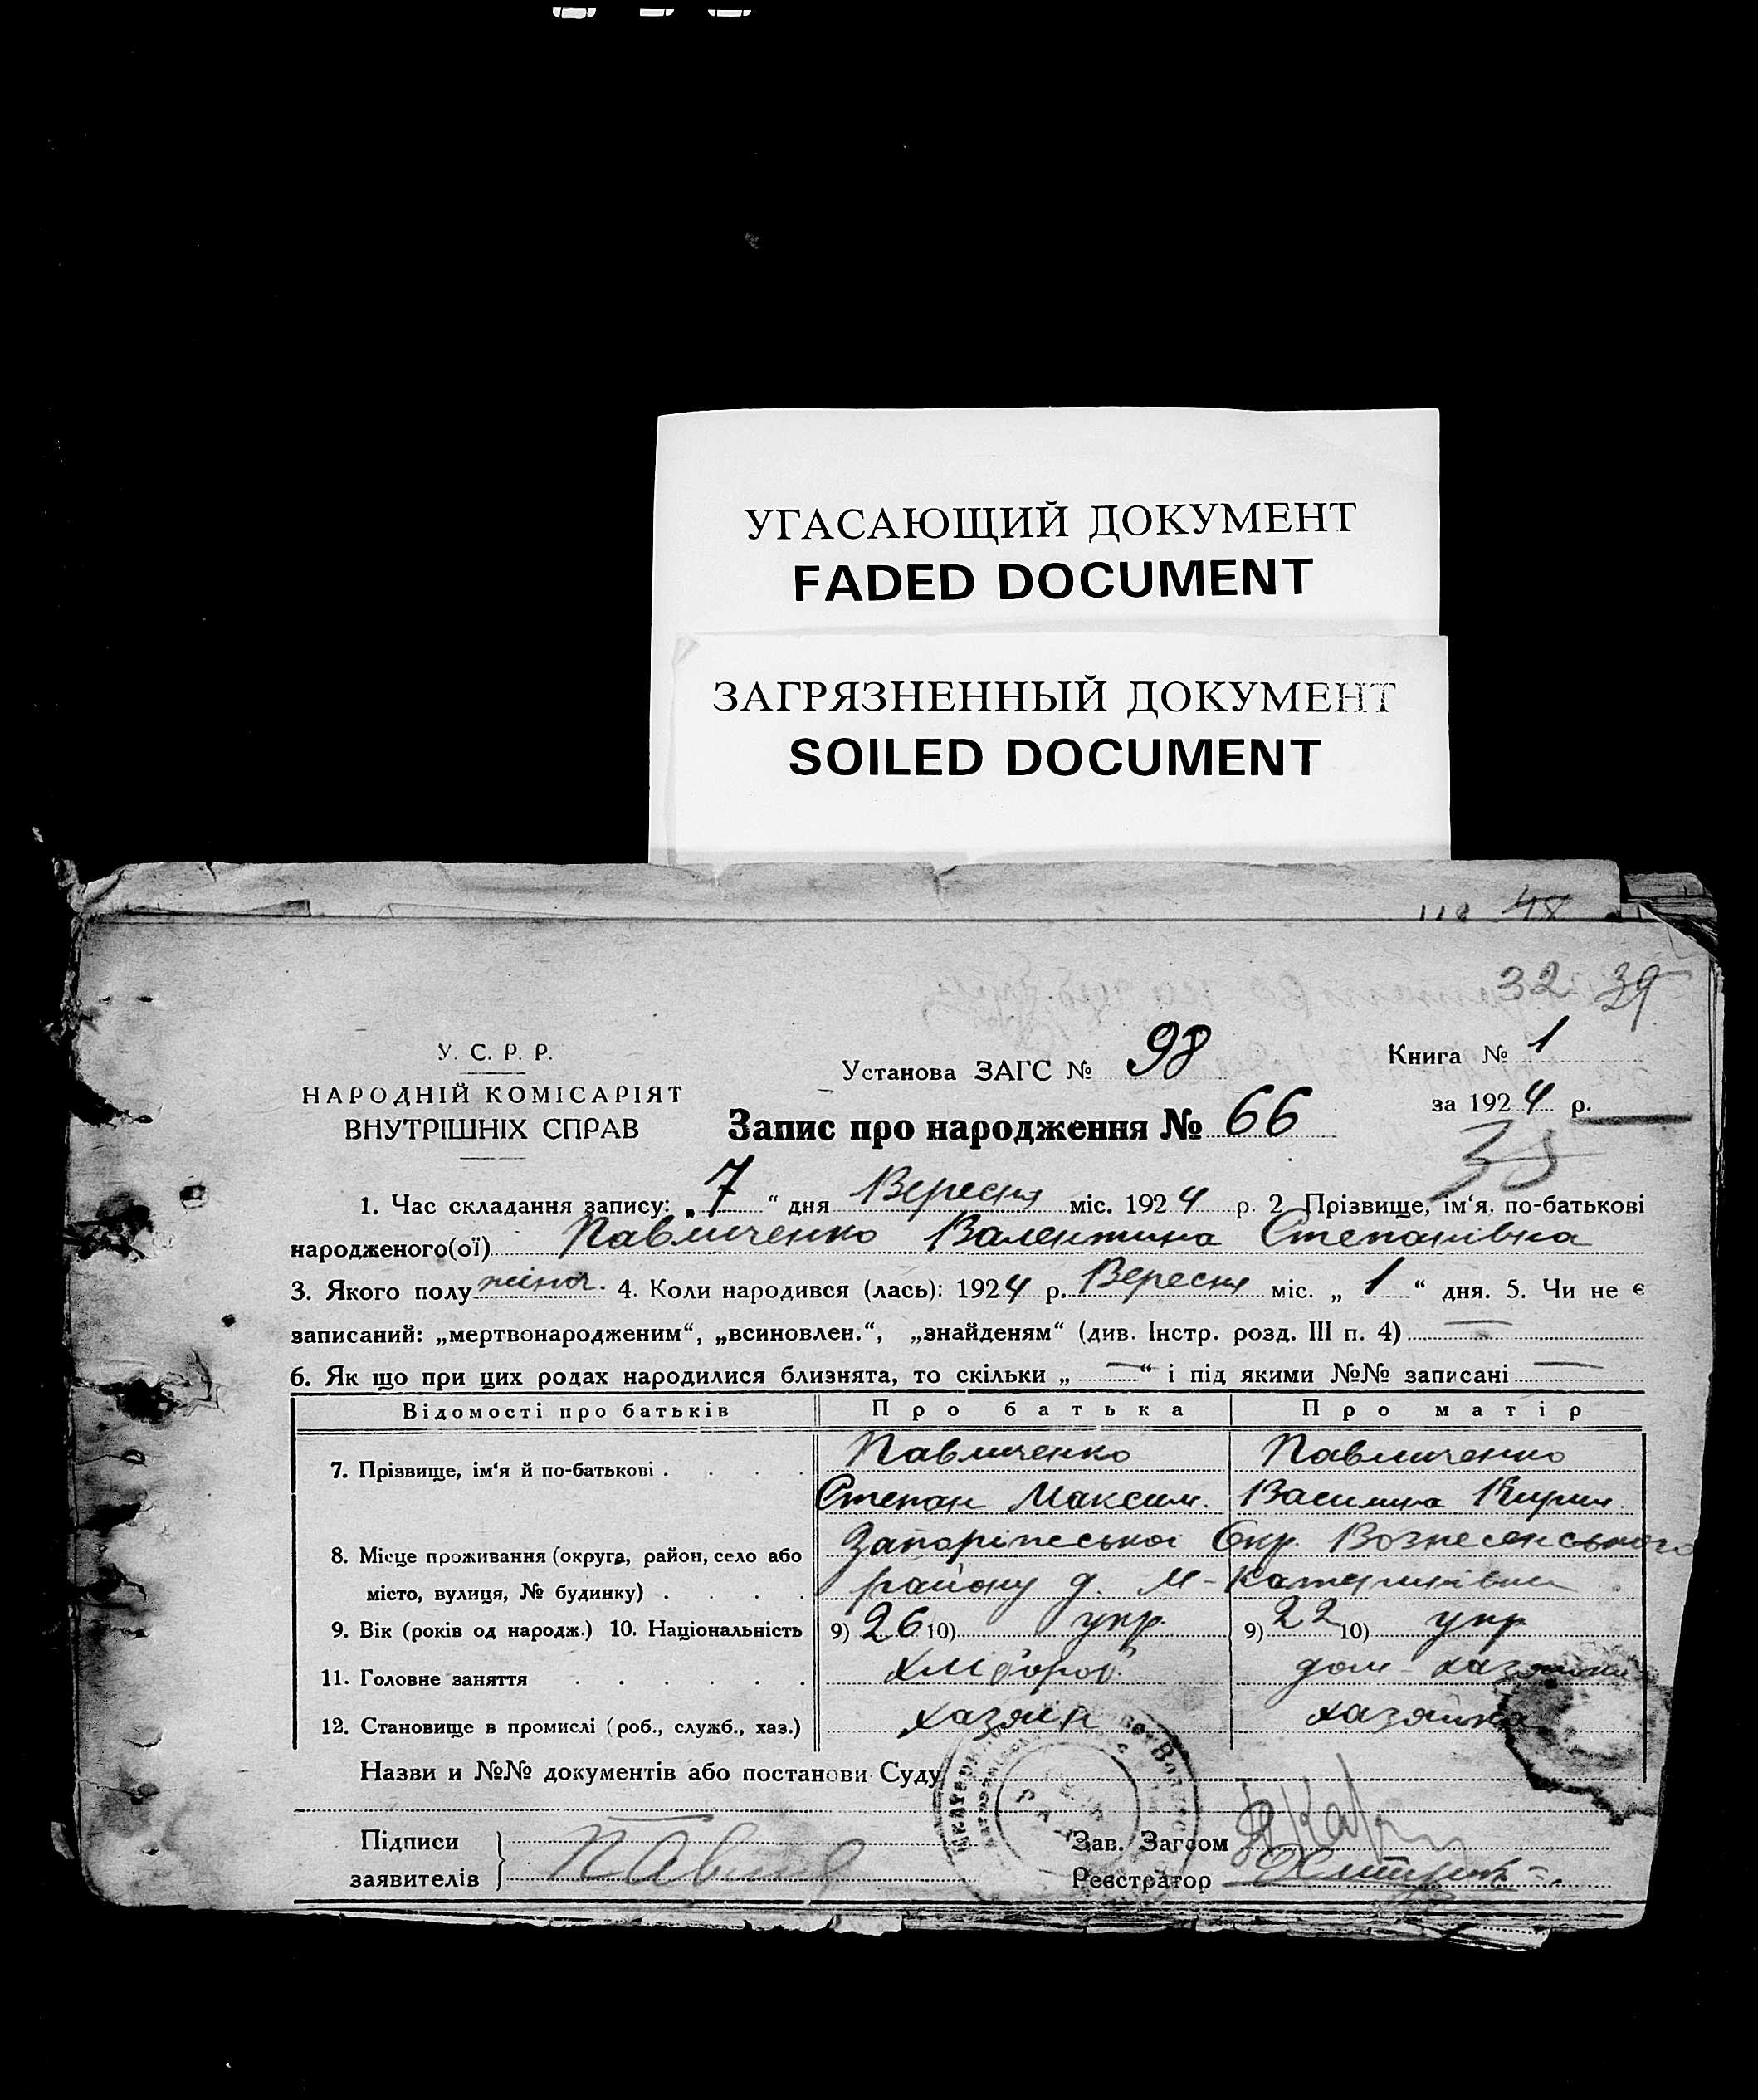 УГАСАЮЩИЙ ДОКУМЕНТ
FADED DOCUMENT
ЗАГРЯЗНЕННЫЙ ДОКУМЕНТ
SOILED DOCUMENT
118 48
32 39
У. С. Р. Р.
НАРОДНІЙ КОМІСАРІЯТ
ВНУТРІШНІХ СПРАВ
Установа ЗАГС № 98
Книга № 1
за 1924 р.
Запис про народження № 66
38
1. Час складання запису: „7“ дня Вересня міс. 1924 р. 2 Прізвище, ім‘я, по-батькові
народженого(ої) Павличенко Валентина Степанівна
3. Якого полу жіноч. 4. Коли народився (лась): 1924 р. Вересня міс. „1“ дня. 5. Чи не є
записаний: „мертвонародженим“, „всиновлен.“, „знайденям“ (див. Інстр. розд. III п. 4) —
6. Як що при цих родах народилися близнята, то скільки „—“ і під якими №№ записані —
Відомості про батьків Про батька Про матір
7. Прізвище, ім‘я й по-батькові . . . . Павличенко Павличенко
Степан Максим. Василина Кирил.
8. Місце проживання (округа, район, село або Запоріжської Окр. Вознесенського
місто, вулиця, № будинку) . . . . району д. М-Катеринівка
9. Вік (років од народж.) 10. Національність 9) 26 10) укр. 9) 22 10) укр
11. Головне заняття . . . . . . хлібороб. дом-хазяйка
12. Становище в промислі (роб., служб., хаз.) хазяїн хазяйка
Назви и №№ документів або постанови Суду
Підписи
заявителів
Зав. Загсом
Реєстратор